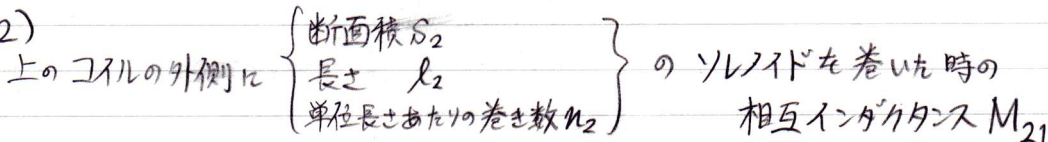 2)
上の コイルの外側に { 断面積 S₂
長さ l₂
単位長さあたりの巻き数 n₂ } の ソレノイドを巻いた時の
相互インダクタンス M₂₁